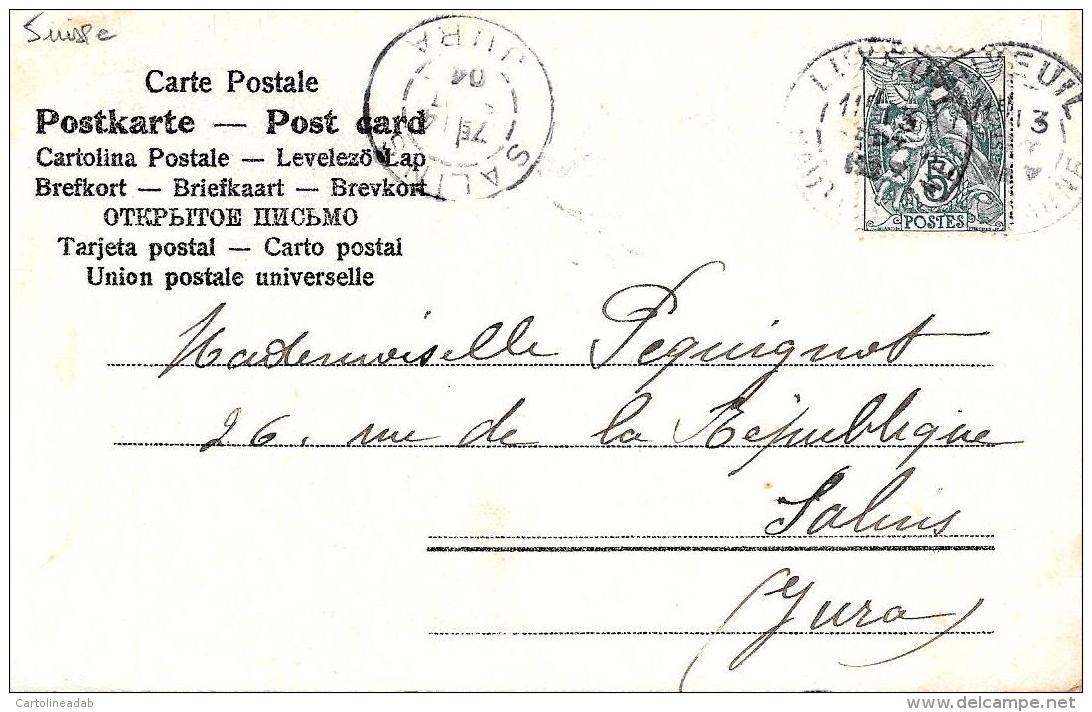 Suisse
Carte Postale
Postkarte — Post card
Cartolina Postale — Levelező Lap
Brefkort — Briefkaart — Brevkort
ОТКРЫТОЕ ПИСЬМО
Tarjeta postal — Carto postal
Union postale universelle
SALINS
JURA
04
5
POSTES
Mademoiselle Pequignot
26, rue de la République
Salins
(Jura)
Cartolineadab
delcampe.net